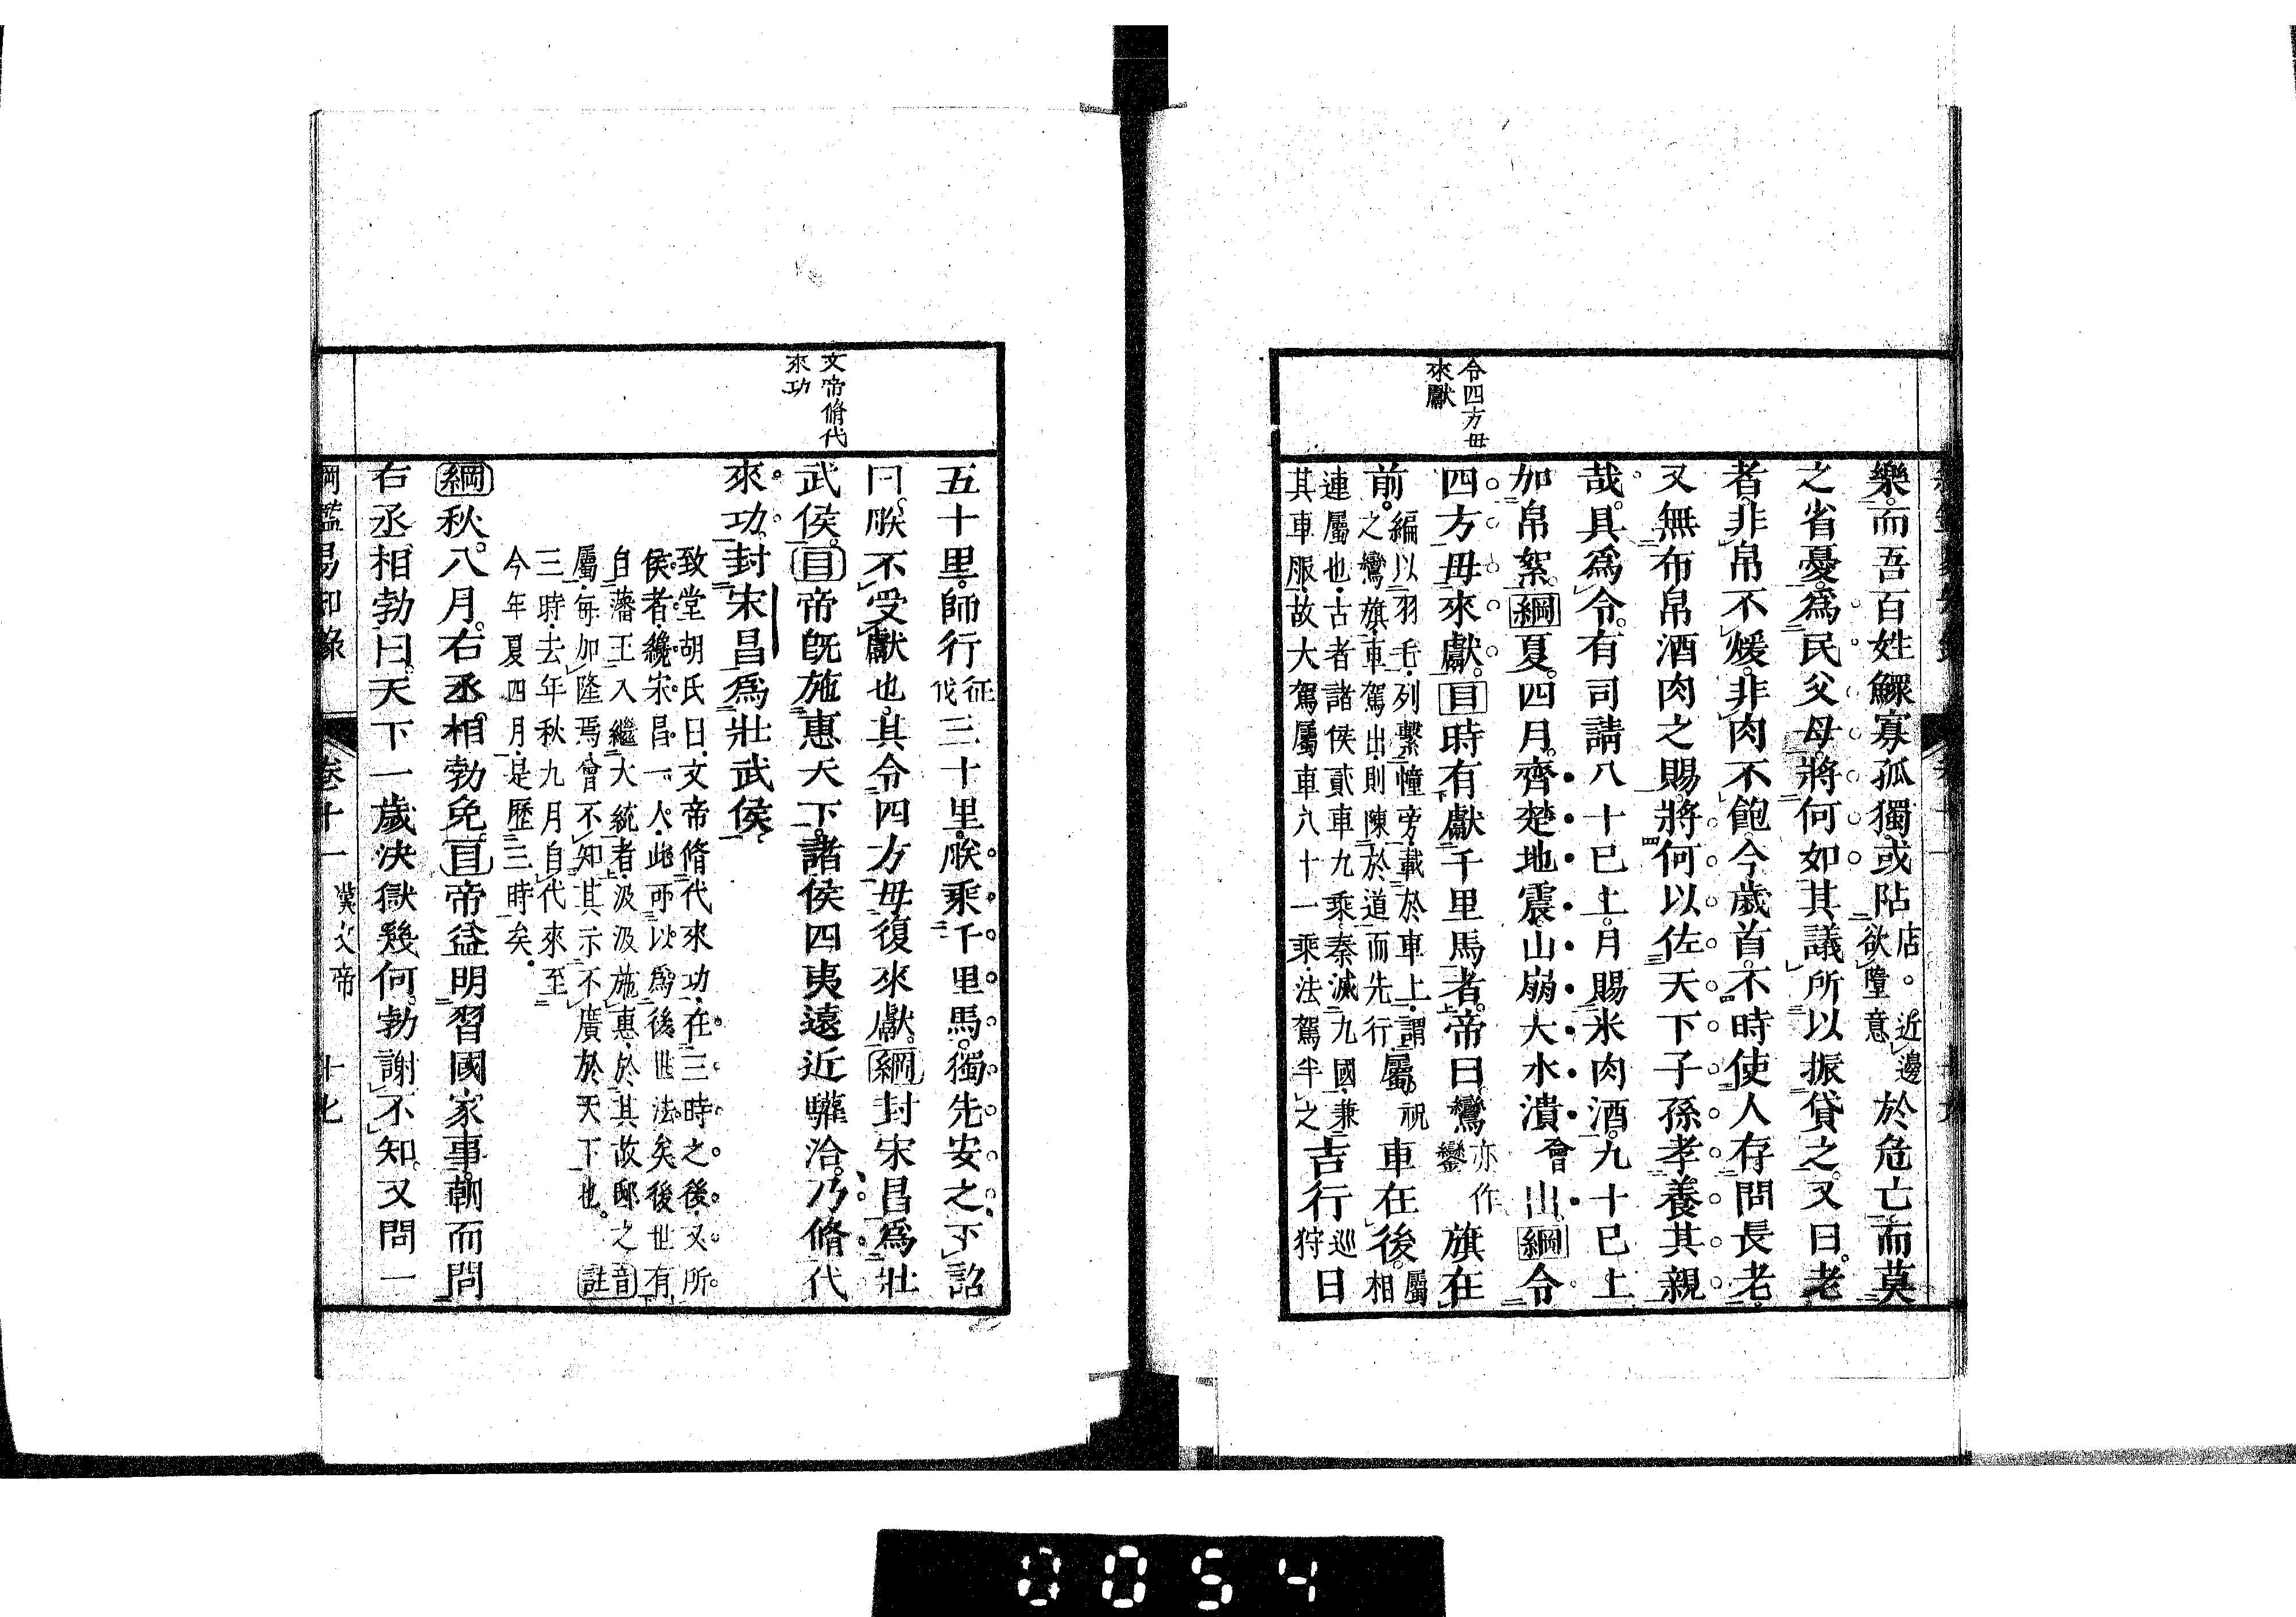 令四方毋
來獻
樂而吾百姓鰥寡孤獨或阽店。近邊欲墮意於危亡而莫
之省憂爲民父母將何如其議所以振貸之又曰老
者非帛不煖非肉不飽今歲首不時使人存問長老
又無布帛酒肉之賜將何以佐天下子孫孝養其親
哉具爲令有司請八十已上月賜米肉酒九十已上
加帛絮綱夏四月齊楚地震山崩大水潰會出綱令
四方毋來獻目時有獻千里馬者帝曰鸞亦作鑾旗在
前編以羽毛列繫幢旁載於車上謂之鸞旗車駕出則陳於道而先行屬祝車在後屬相
連屬也古者諸侯貳車九乘秦滅九國兼其車服故大駕屬車八十一乘法駕半之吉行巡狩日
文帝脩代
來功
五十里師行征伐三十里朕乘千里馬獨先安之下詔
曰朕不受獻也其令四方毋復來獻綱封宋昌爲壯
武侯目帝既施惠天下諸侯四夷遠近驩洽乃脩代
來功封宋昌爲壯武侯
致堂胡氏曰文帝脩代來功在三時之後又所
侯者纔宋昌一人此可以爲後世法矣後世有
自藩王入繼大統者汲汲施惠於其故邸之音
屬每加隆焉曾不知其示不廣於天下也註
三時去年秋九月自代來至
今年夏四月是歷三時矣
綱秋八月右丞相勃免目帝益明習國家事朝而問
右丞相勃曰天下一歲決獄幾何勃謝不知又問一
卷十一 漢文帝 十七
0054